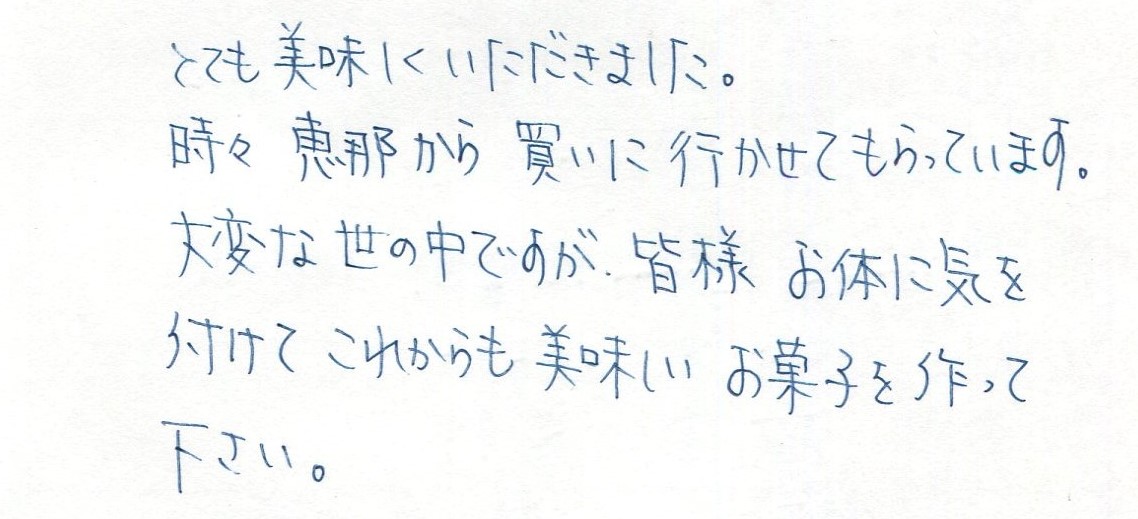 とても美味しくいただきました。
時々 恵那から 買いに行かせてもらっています。
大変な世の中ですが、皆様 お体に気を
付けて これからも 美味しい お菓子を作って
下さい。